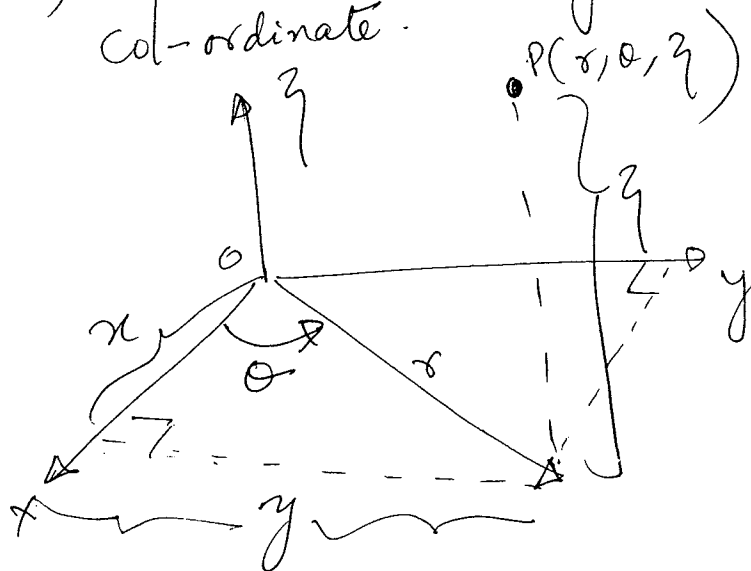 col-ordinate.
P(r, θ, z)
z
z
O
y
x
θ
r
x
y